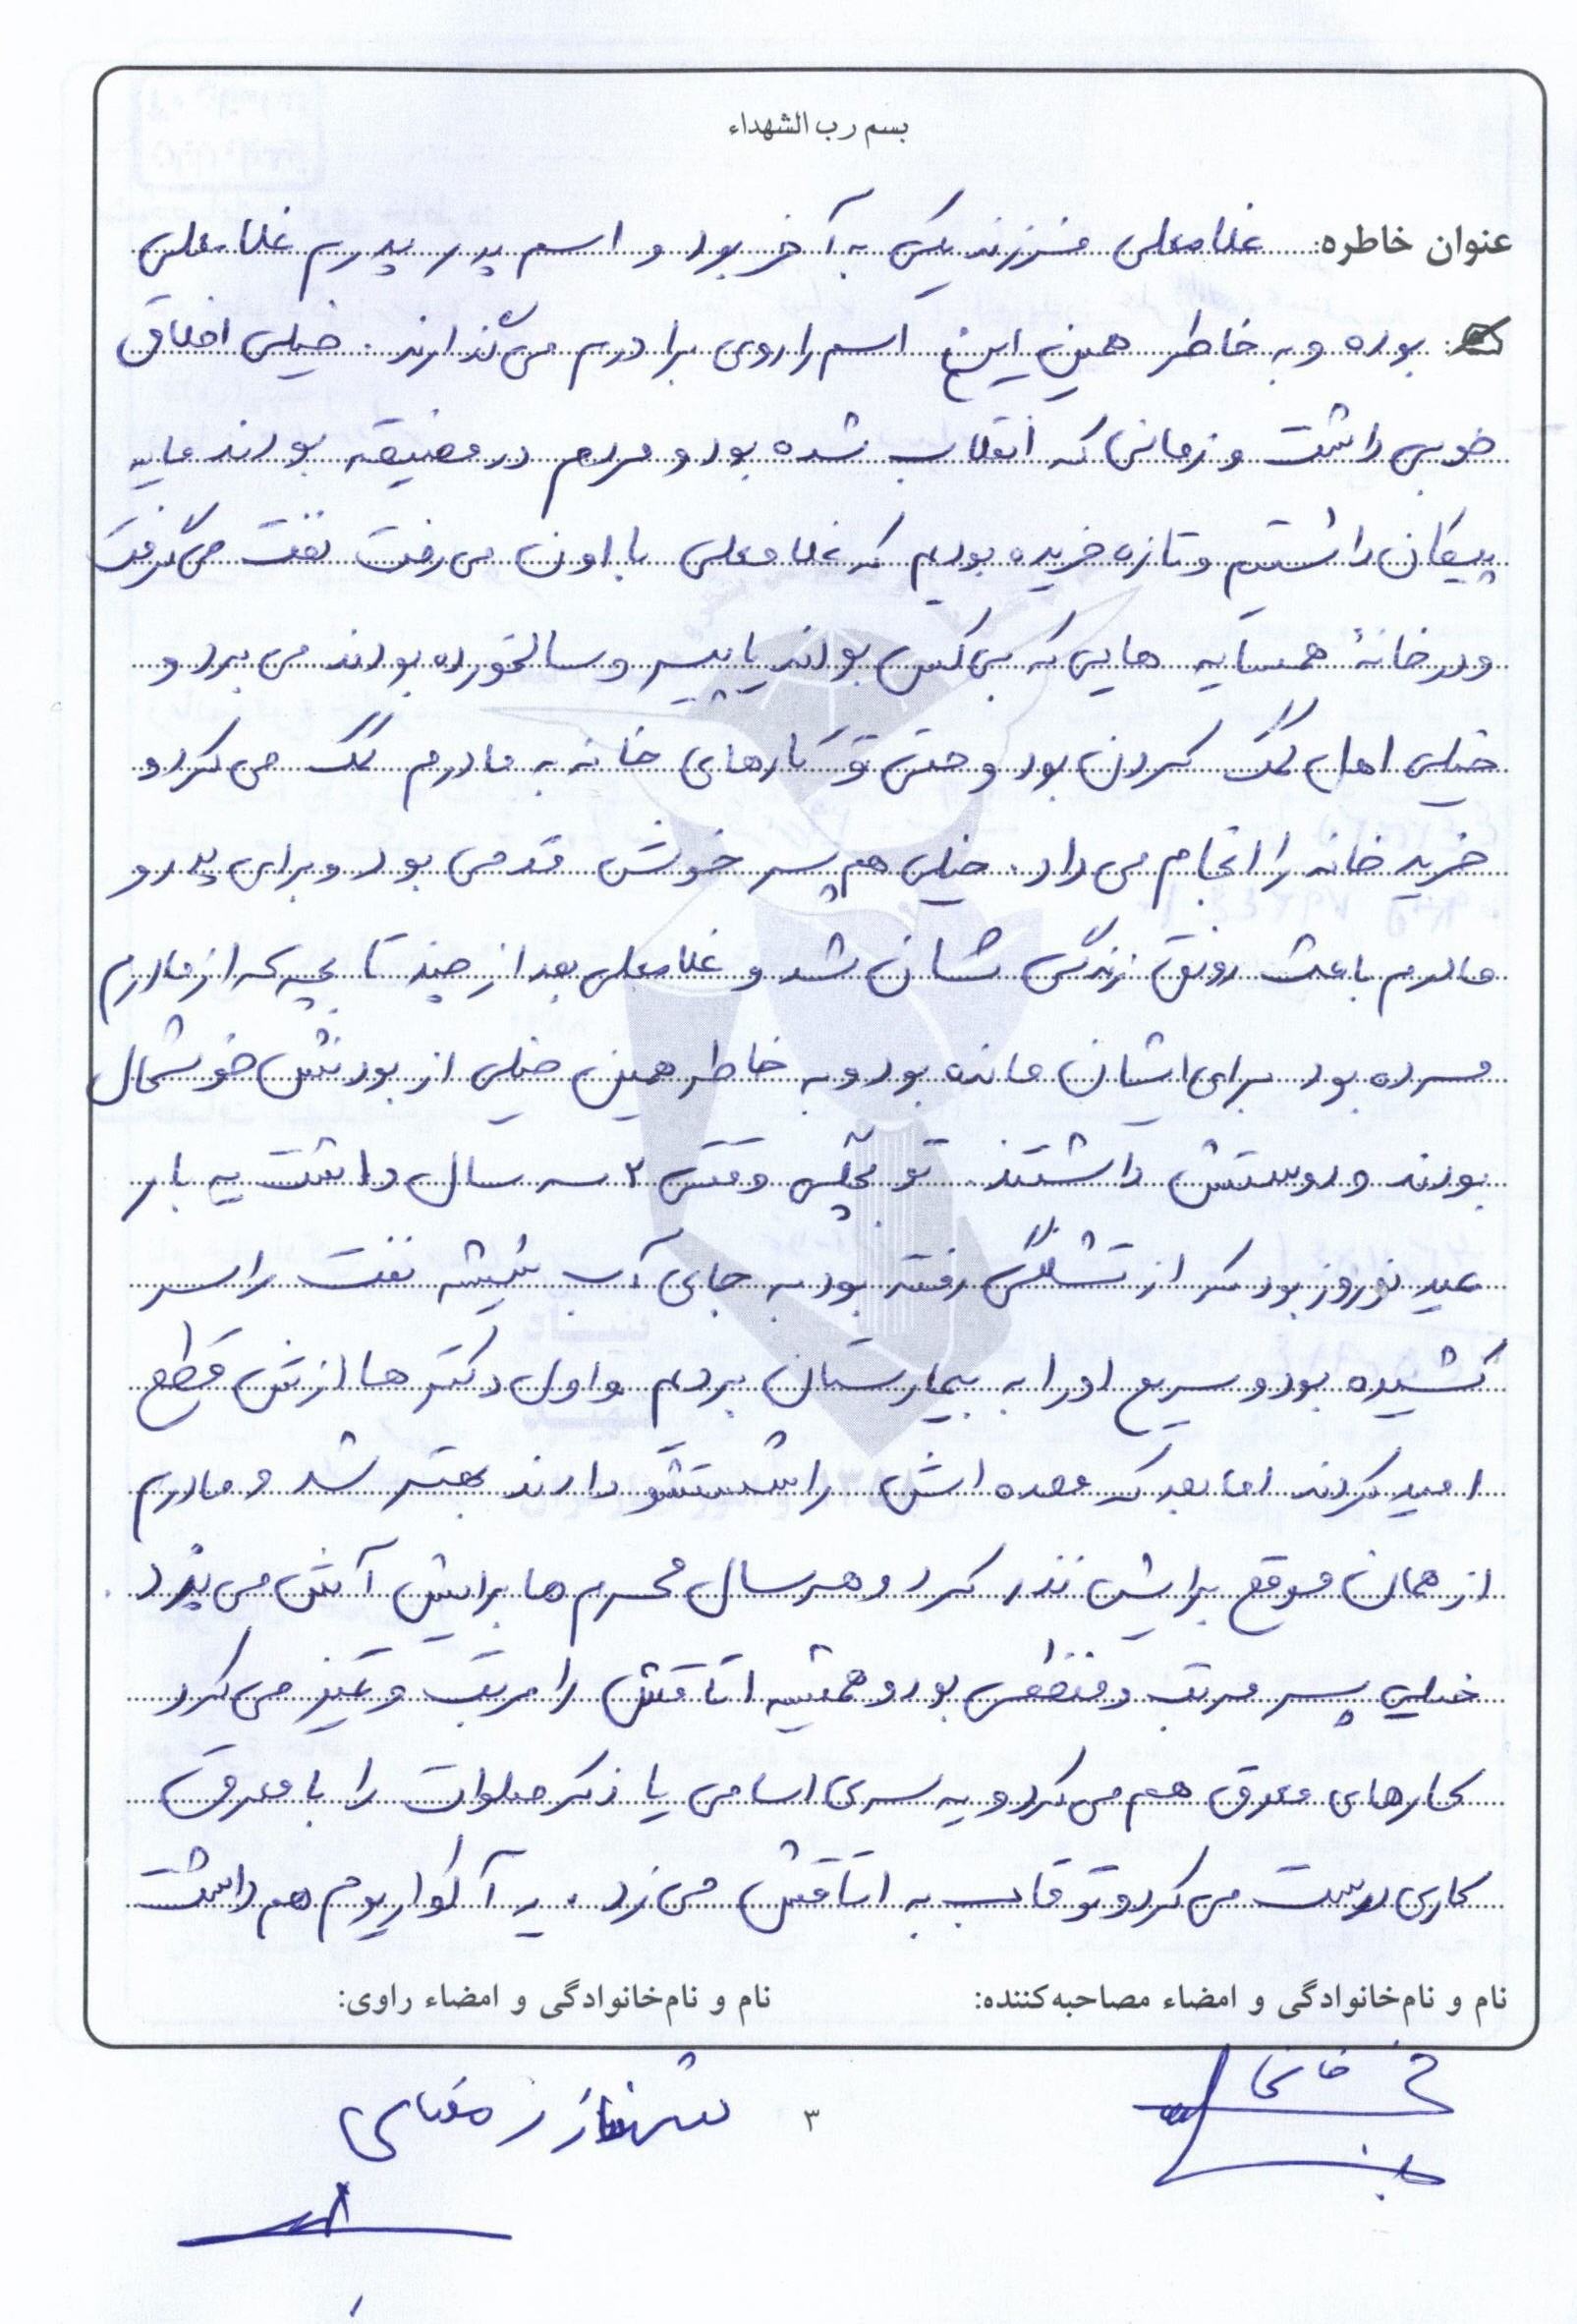 بسم رب الشهداء
عنوان خاطره: غلامعلی فرزند یکی به آخر بود و اسم پدر پدرم غلامعلی
بوده و به خاطر همین این اسم را روی برادرم می گذارند. خیلی اخلاق
خوبی داشت و زمانی که انقلاب شده بود و مردم در مضیقه بودند ما یه
پیکان داشتیم و تازه خریده بودیم که غلامعلی با اون می رفت نفت می گرفت
و در خانهٔ همسایه هایی که بی کس بودند یا پیر و سالخورده بودند می برد و
خیلی اهل کمک کردن بود و حتی تو کارهای خانه به مادرم کمک می کرد و
خرید خانه را انجام می داد. خیلی هم پسر خوش قدمی بود و برای پدر و
مادرم باعث رونق زندگی شان شد و غلامعلی بعد از چند تا بچه که از مادرم
مرده بود برای ایشان مانده بود و به خاطر همین خیلی از بودنش خوشحال
بودند و دوستش داشتند. تو بچگی وقتی ۲ سه سال داشت یه بار
عید نوروز بود که از تشنگی رفته بود به جای آب شیشه نفت را سر
کشیده بود و سریع او را به بیمارستان بردیم و اول دکتر ها ازش قطع
امید کردند اما بعد که معده اش را شستشو دادند بهتر شد و مادرم
از همان موقع برایش نذر کرد و هر سال محرم ها برایش آش می پزد.
خیلی پسر مرتب و منظمی بود و همیشه اتاقش را مرتب و تمیز می کرد
کارهای معرق هم می کرد و یه سری اسامی یا ذکر صلوات را با معرق
کاری درست می کرد و تو قاب به اتاقش می زد. یه آکواریوم هم داشت
نام و نام‌خانوادگی و امضاء مصاحبه‌کننده:
نام و نام‌خانوادگی و امضاء راوی:
شهناز رمضانی
۳